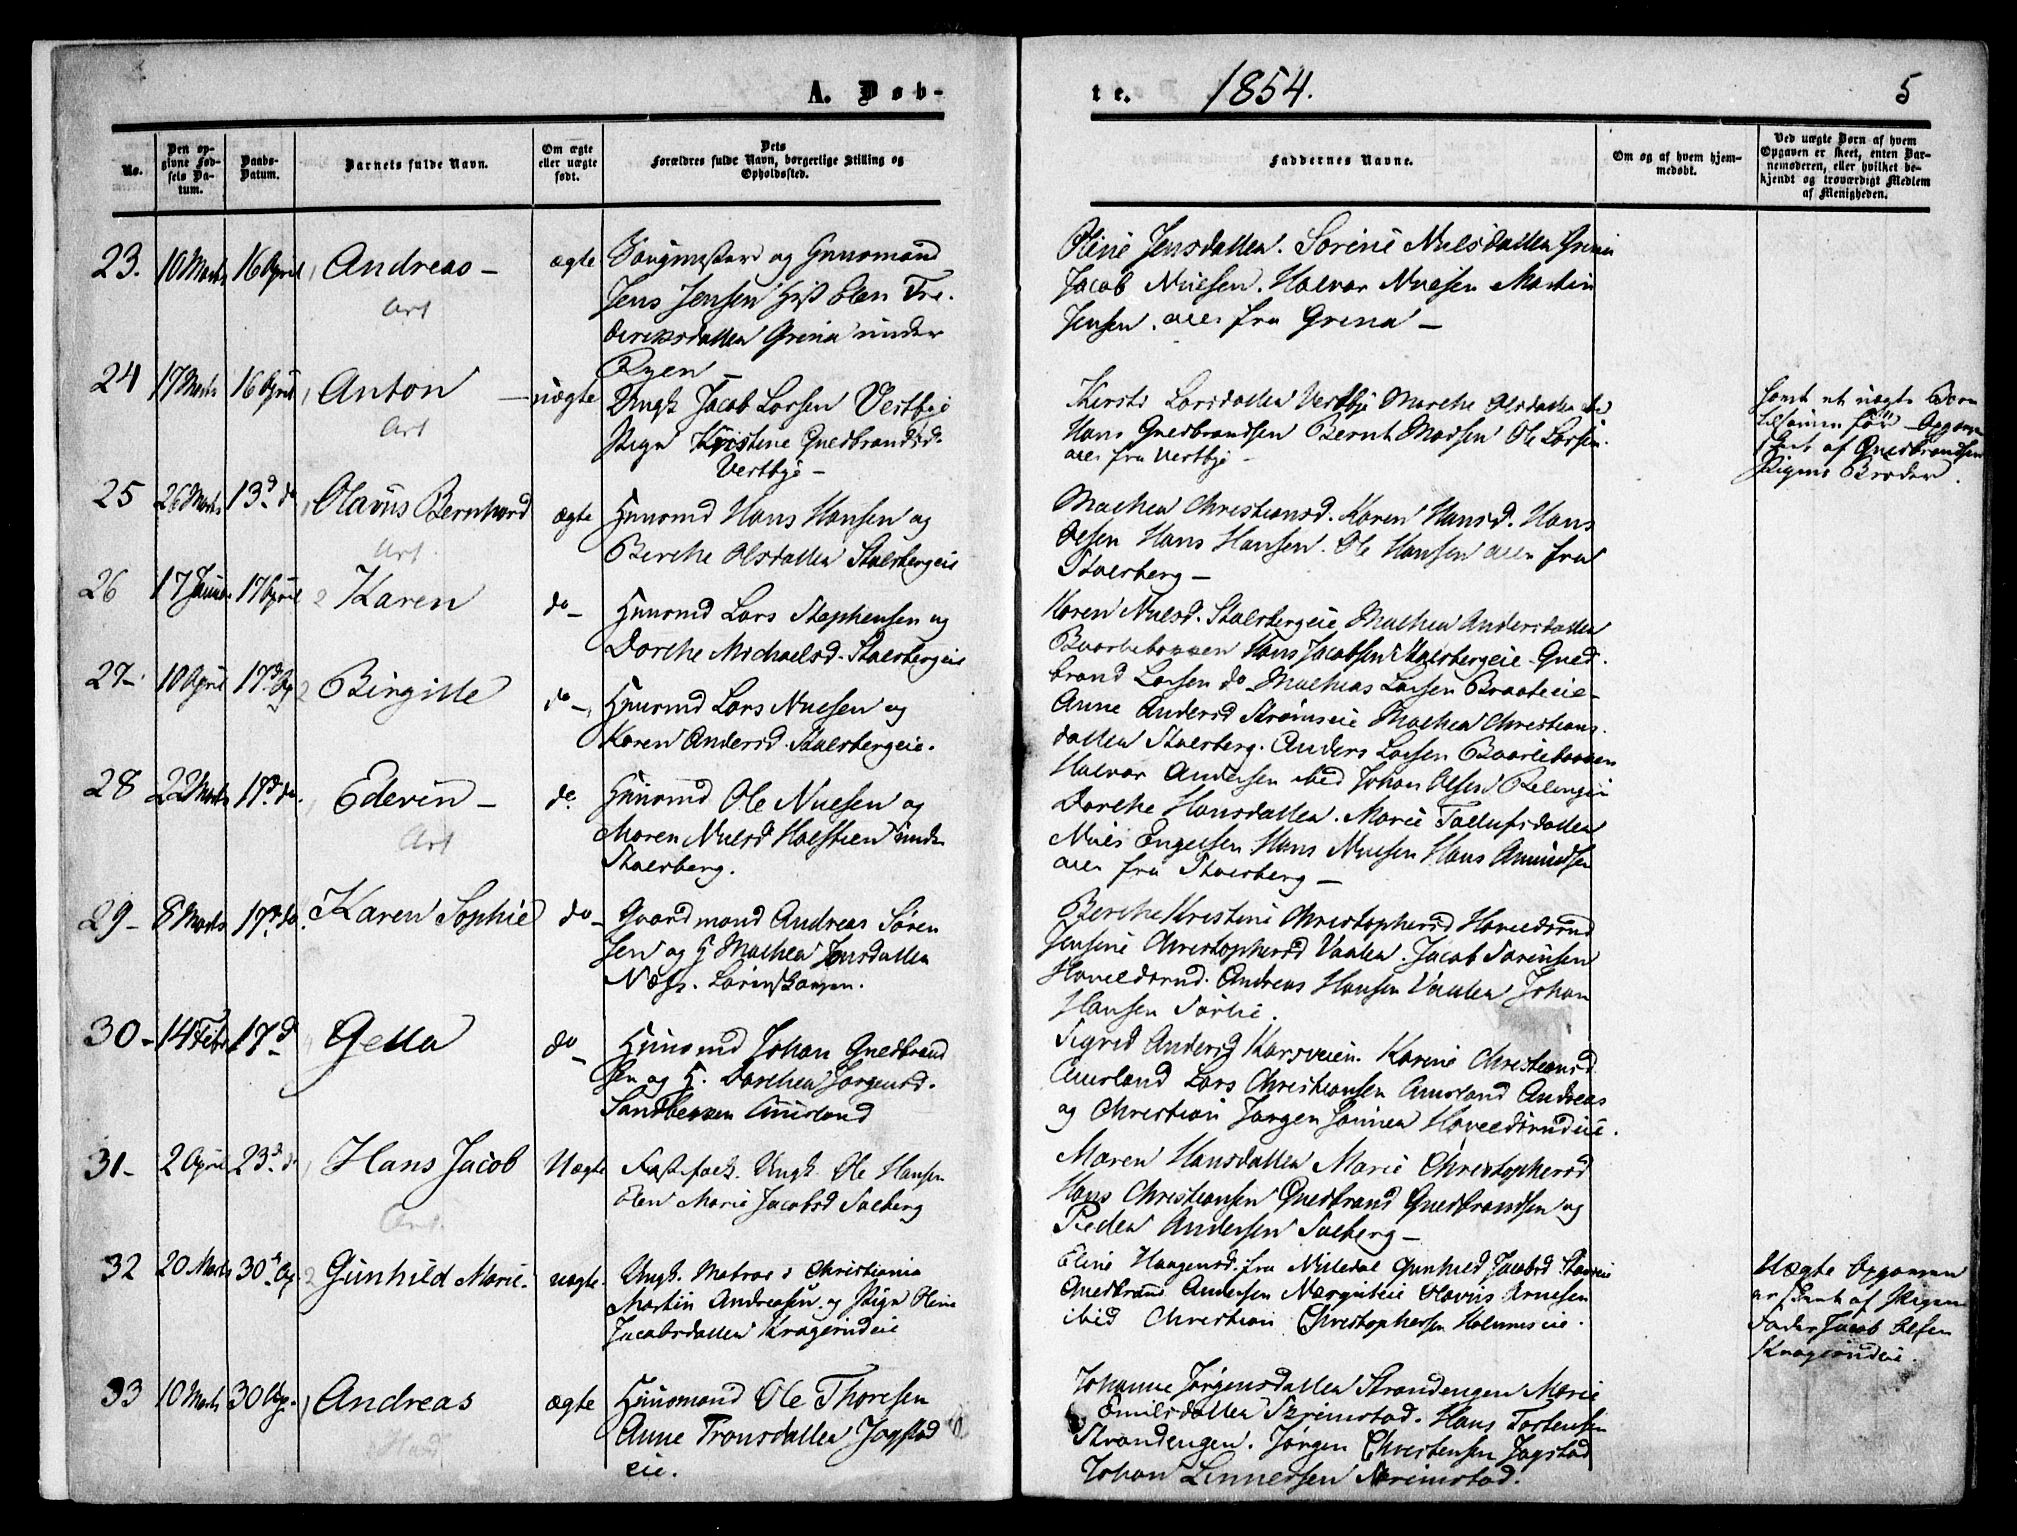 A. Døb-
te.
1854.
5
No.
Den op-
givne Fød-
sels Da-
tum.
Daabs-
Datum.
Barnets fulde Navn.
Om ægte
eller uægte
født.
Dets
Forældres fulde Navn, borgerlige Stilling og
Opholdssted.
Faddernes Navne.
Om og af hvem hjem-
medøbt.
Ved uægte Børn af hvem
Opgaven er skeet, enten Bar-
nemoderen, eller hvilket be-
kjendt og troværdigt Medlem
af Menigheden.
23. 10 Marts 16 April Andreas –
Art
ægte
og Huusmand
Jens Jensen Ellen Fre-
deriksdatter Grina under
Ryen
Oline Jensdatter. Sørine Nielsdatter Grina
Jacob Nielsen. Halvor Nielsen Martin
Jensen. alle fra Grina –
24 17 Marts 16 April Anton
Art
uægte
Ungk. Jacob Larsen Vestbye
Pige Kristine Gulbrandsd.
Vestbye –
Kirsti Larsdatter Vestbye Marthe Olsdatter
Hans Gulbrandsen Bernt Madsen Ole Larsen.
alle fra Vestbye –
af Gulbrandsen
Pigens Broder.
25 26 Marts 13d. do Olavus Bernhard
Art.
ægte
Huusmd Hans Hansen og
Berthe Olsdatter Stalsbergeie
Mathea Christiansd. Karen Hansd. Hans
Olsen Hans Hansen. Ole Hansen alle fra
Stalsberg –
26 17 Januar 17 April 2 Karen
do –
Huusmd Lars Stephensen og
Dorthe Michaelsd. Stalsbergeie
Karen Nielsd. Stalsbergeie Mathea Andersdatter
Hans Jacobsen Stalsbergeie. Guld-
brand Larsen do Mathias Larsen Braateeie –
27 – 10 April 17d Ap 2 Birgitte
do –
Huusmd Lars Nielsen og
Karen Andersd. Stalsbergeie.
Anne Andersd Strømseie Mathea Christians-
datter Stalsberg. Anders Larsen
Halvor Andersen ibid Johan Olsen
28 22 Marts 17d. do. Edevin –
Art
do.
Huusmd Ole Nielsen og
Maren Nielsd Holstien under
Stalsberg.
Dorthe Hansdatter. Marie Tollefsdatter
Niels Engelsen Hans Nielsen Hans Amundsen
alle fra Stalsberg –
29 – 8 Marts 17d. do. Karen Sophie
do –
Gaardmand Andreas Søren
sen og H Mathea Jensdatter
Næss. Lørenskougen.
Berthe Kristine Christophersd Hovelsrud
Jensine Christophersd Vaaler. Jacob Sørensen
Hovelsrud. Andreas Hansen Vaaler Johan
Hansen Sørlie.
30 – 14 Febr 17d Gella
do –
Huusmd Johan Gulbrand
sen og H. Dorthea Jørgensd.
Sandbekken Aurland
Sigrid Andersd Korsveien. Karine Christiansd.
Aurland Lars Christiansen Aurland Andreas
og Christian Jørgen Hovelsrudeie.
31 – 2 April 23d. do Hans Jacob
Art.
Uægte
Ungk. Ole Hansen
Elen Marie Jacobsd Solberg
Maren Hansdatter Marie Christophersd
Hans Christiansen Gulbrand Gulbrandsen og
Peder Andersen Solberg –
32 20 Marts 30d. Ap 2 Gunhild Marie.
uægte.
Ungk. Matros i Christiania
Martin Andreasen og Pige Oline
Jacobsdatter Kragerudeie
Eline Haagensd. fra Nitedal Gunhild Jacobsd
Gulbrand Andersen Olavus Arnesen
ibid Christian Christophersen Holmeseie.
Uægte Opgaven
er skeet af Pigens
Fader Jacob Olsen
Kragerudeie.
33 10 Marts 30 Ap. Andreas
ægte
Huusmand Ole Thoresen
Anne Tronsdatter Jogstad
eie.
Johanne Jørgensdatter Strandengen Marie
Emilsdatter Skrimstad. Hans Torstensen
Strandengen. Jørgen Christensen Jogstad
Johan Linnersen Skrimstad.